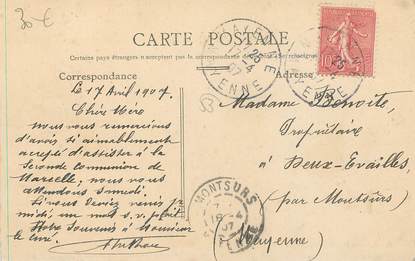 30 €
CARTE POSTALE
Certains pays étrangers n'acceptent pas la correspondance
Correspondance
Adresse
Le 17 Avril 1907.
Chère Mère
Nous vous remercions
d'avoir si aimablement
accepté d'assister à la
Seconde Communion de
Marcelle; nous vous
attendons Samedi.
Si vous deviez venir
midi, un mot s.v. plaît
Notre Souvenir à Monsieur
le Curé.
Madame Benoîte,
Propriétaire
à Deux-Evailles,
(par Montsûrs)
Mayenne)
MAYENNE
MONTSURS
10